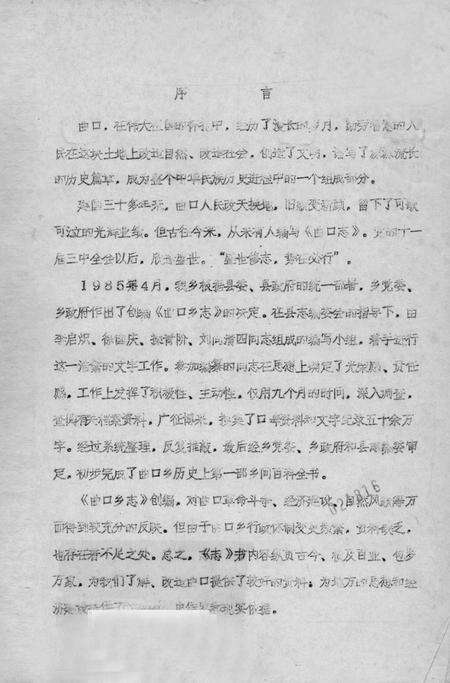 序 言
曲口，在伟大祖国的怀抱中，经历了漫长的岁月，勤劳智慧的人
民在这块土地上改造自然、改造社会，创造了文明，谱写了源远流长
的历史篇章，成为整个中华民族历史进程中的一个组成部分。
建国三十多年来，曲口人民改天换地，旧貌变新颜，留下了可歌
可泣的光辉业绩。但古名今来，从未有人编写《曲口志》。党的十一
届三中全会以后，欣逢盛世。“盛世修志，势在必行”。
1985年4月，我乡根据县委、县政府的统一部署，乡党委、
乡政府作出了创编《曲口乡志》的决定。在县志编委会的指导下，由
李启炽、 四同志组成的编写小组，着手进行
这一浩繁的文字工作。参加编纂的同志在思想上树立了光荣感、责任
感，工作上发挥了积极性、主动性，仅用九个月的时间，深入调查，
查阅有关档案资料，广征博采，搜集了口碑资料和文字纪录五十余万
字。经过系统整理，反复推敲，最后经乡党委、乡政府和县志编委审
定，初步完成了曲口乡历史上第一部乡间百科全书。
《曲口乡志》创编，对曲口革命斗争、经济建设、自然风貌等方
面得到较充分的反映。但由于曲口乡行政体制变更频繁，资料缺乏，
也存在着不足之处。总之，《志》书内容纵贯古今、横及百业、包罗
万象，为我们了解、改造曲口提供了较好的资料；为地方的思想和经
济建设